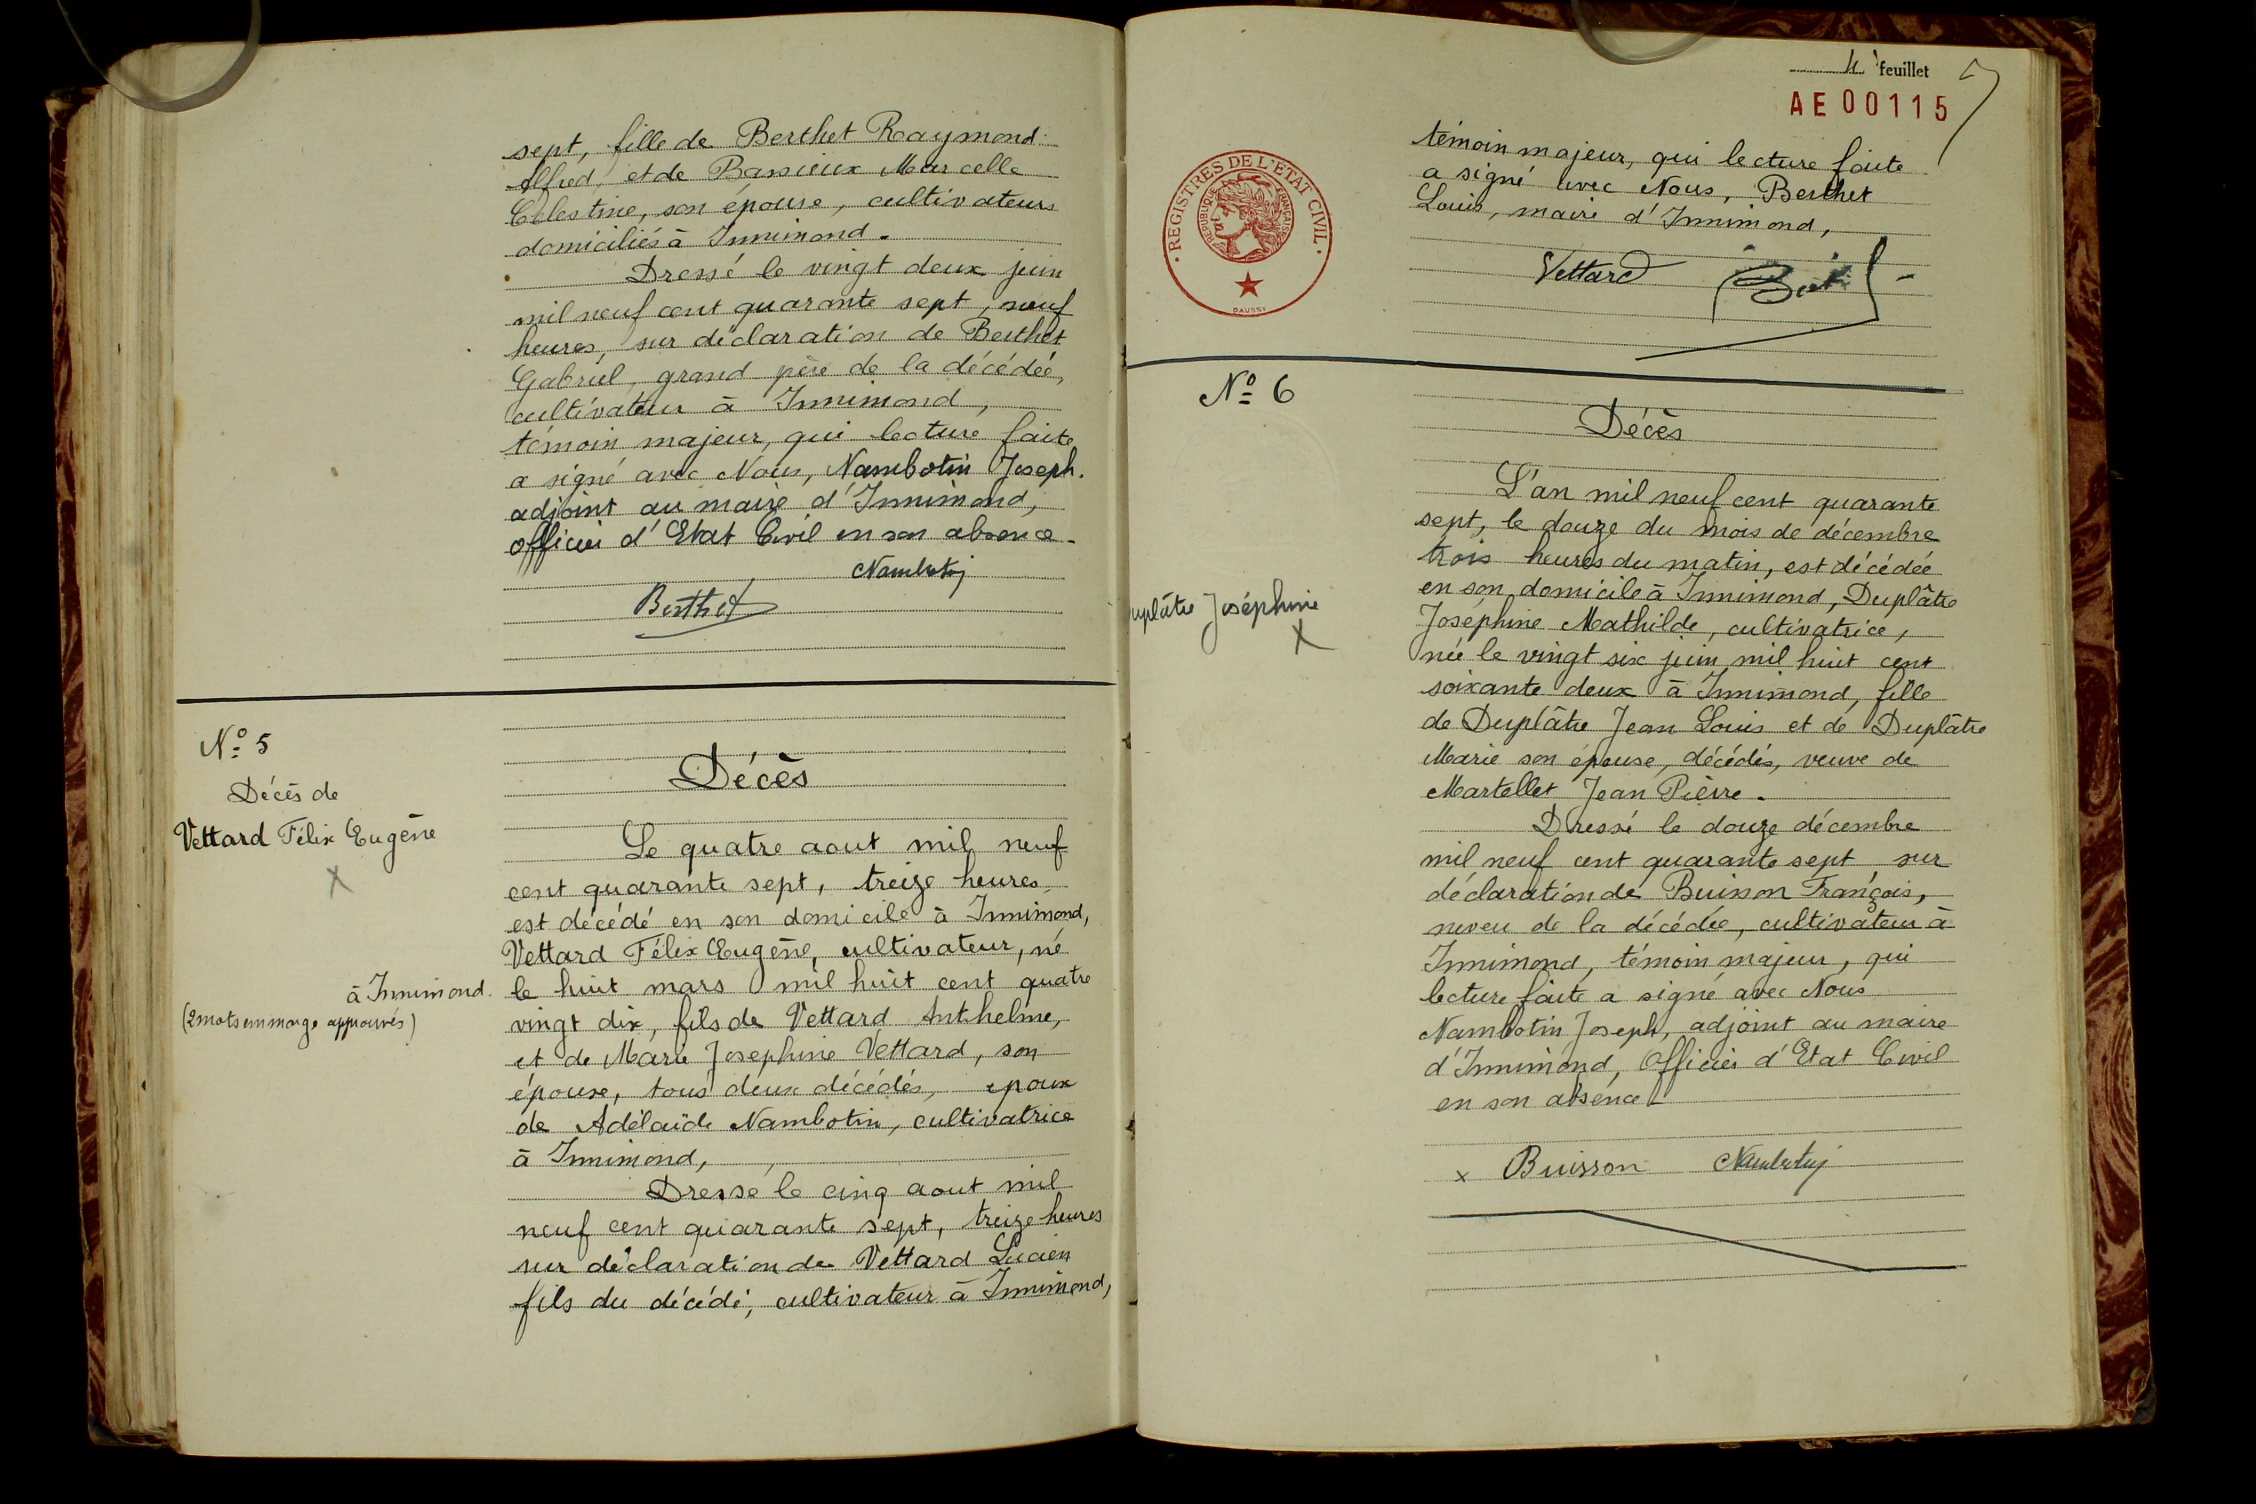 sept, fille de Berthet Raymond
Alfred, et de Bassieux Marcelle
Célestine, son épouse, cultivateurs
domiciliés à Innimond.
Dressé le vingt deux juin
mil neuf cent quarante sept, neuf
heures, sur déclaration de Berthet
Gabriel, grand père de la décédée,
cultivateur à Innimond,
témoin majeur, qui lecture faite
a signé avec Nous, Nambotin Joseph.
adjoint au maire d'Innimond,
officier d'Etat Civil en son absence.
Nambotin
Berthet
Nº 5
Décès de
Vettard Félix Eugène
X
à Innimond.
(2 mots en marge approuvés)
Décès
Le quatre aout mil neuf
cent quarante sept, treize heures,
est décédé en son domicile à Innimond,
Vettard Félix Eugène, cultivateur, né
le huit mars mil huit cent quatre
vingt dix, fils de Vettard Anthelme,
et de Marie Josephine Vettard, son
épouse, tous deux décédés, epoux
de Adélaïde Nambotin, cultivatrice
à Innimond,
Dressé le cinq aout mil
neuf cent quarante sept, treize heures
sur déclaration de Vettard Lucien
fils du décédé, cultivateur à Innimond,
4e feuillet
AE 00115
REGISTRES DE L'ETAT CIVIL
REPUBLIQUE FRANÇAISE
DAUSSY
témoin majeur, qui lecture faite
a signé avec Nous, Berthet
Louis, maire d'Innimond,
Vettard
Nº 6
uplâtre Joséphine
X
Décès
L'an mil neuf cent quarante
sept, le douze du mois de décembre
trois heures du matin, est décédée
en son domicile à Innimond, Duplâtre
Joséphine Mathilde, cultivatrice,
née le vingt six juin mil huit cent
soixante deux à Innimond, fille
de Duplâtre Jean Louis et de Duplâtre
Marie son épouse, décédés, veuve de
Martellet Jean Pièrre.
Dressé le douze décembre
mil neuf cent quarante sept sur
déclaration de Buisson François,
neveu de la décédée, cultivateur à
Innimond, témoin majeur, qui
lecture faite a signé avec Nous
Nambotin Joseph, adjoint au maire
d'Innimond, Officier d'Etat Civil
en son absence
x Buisson Nambotin